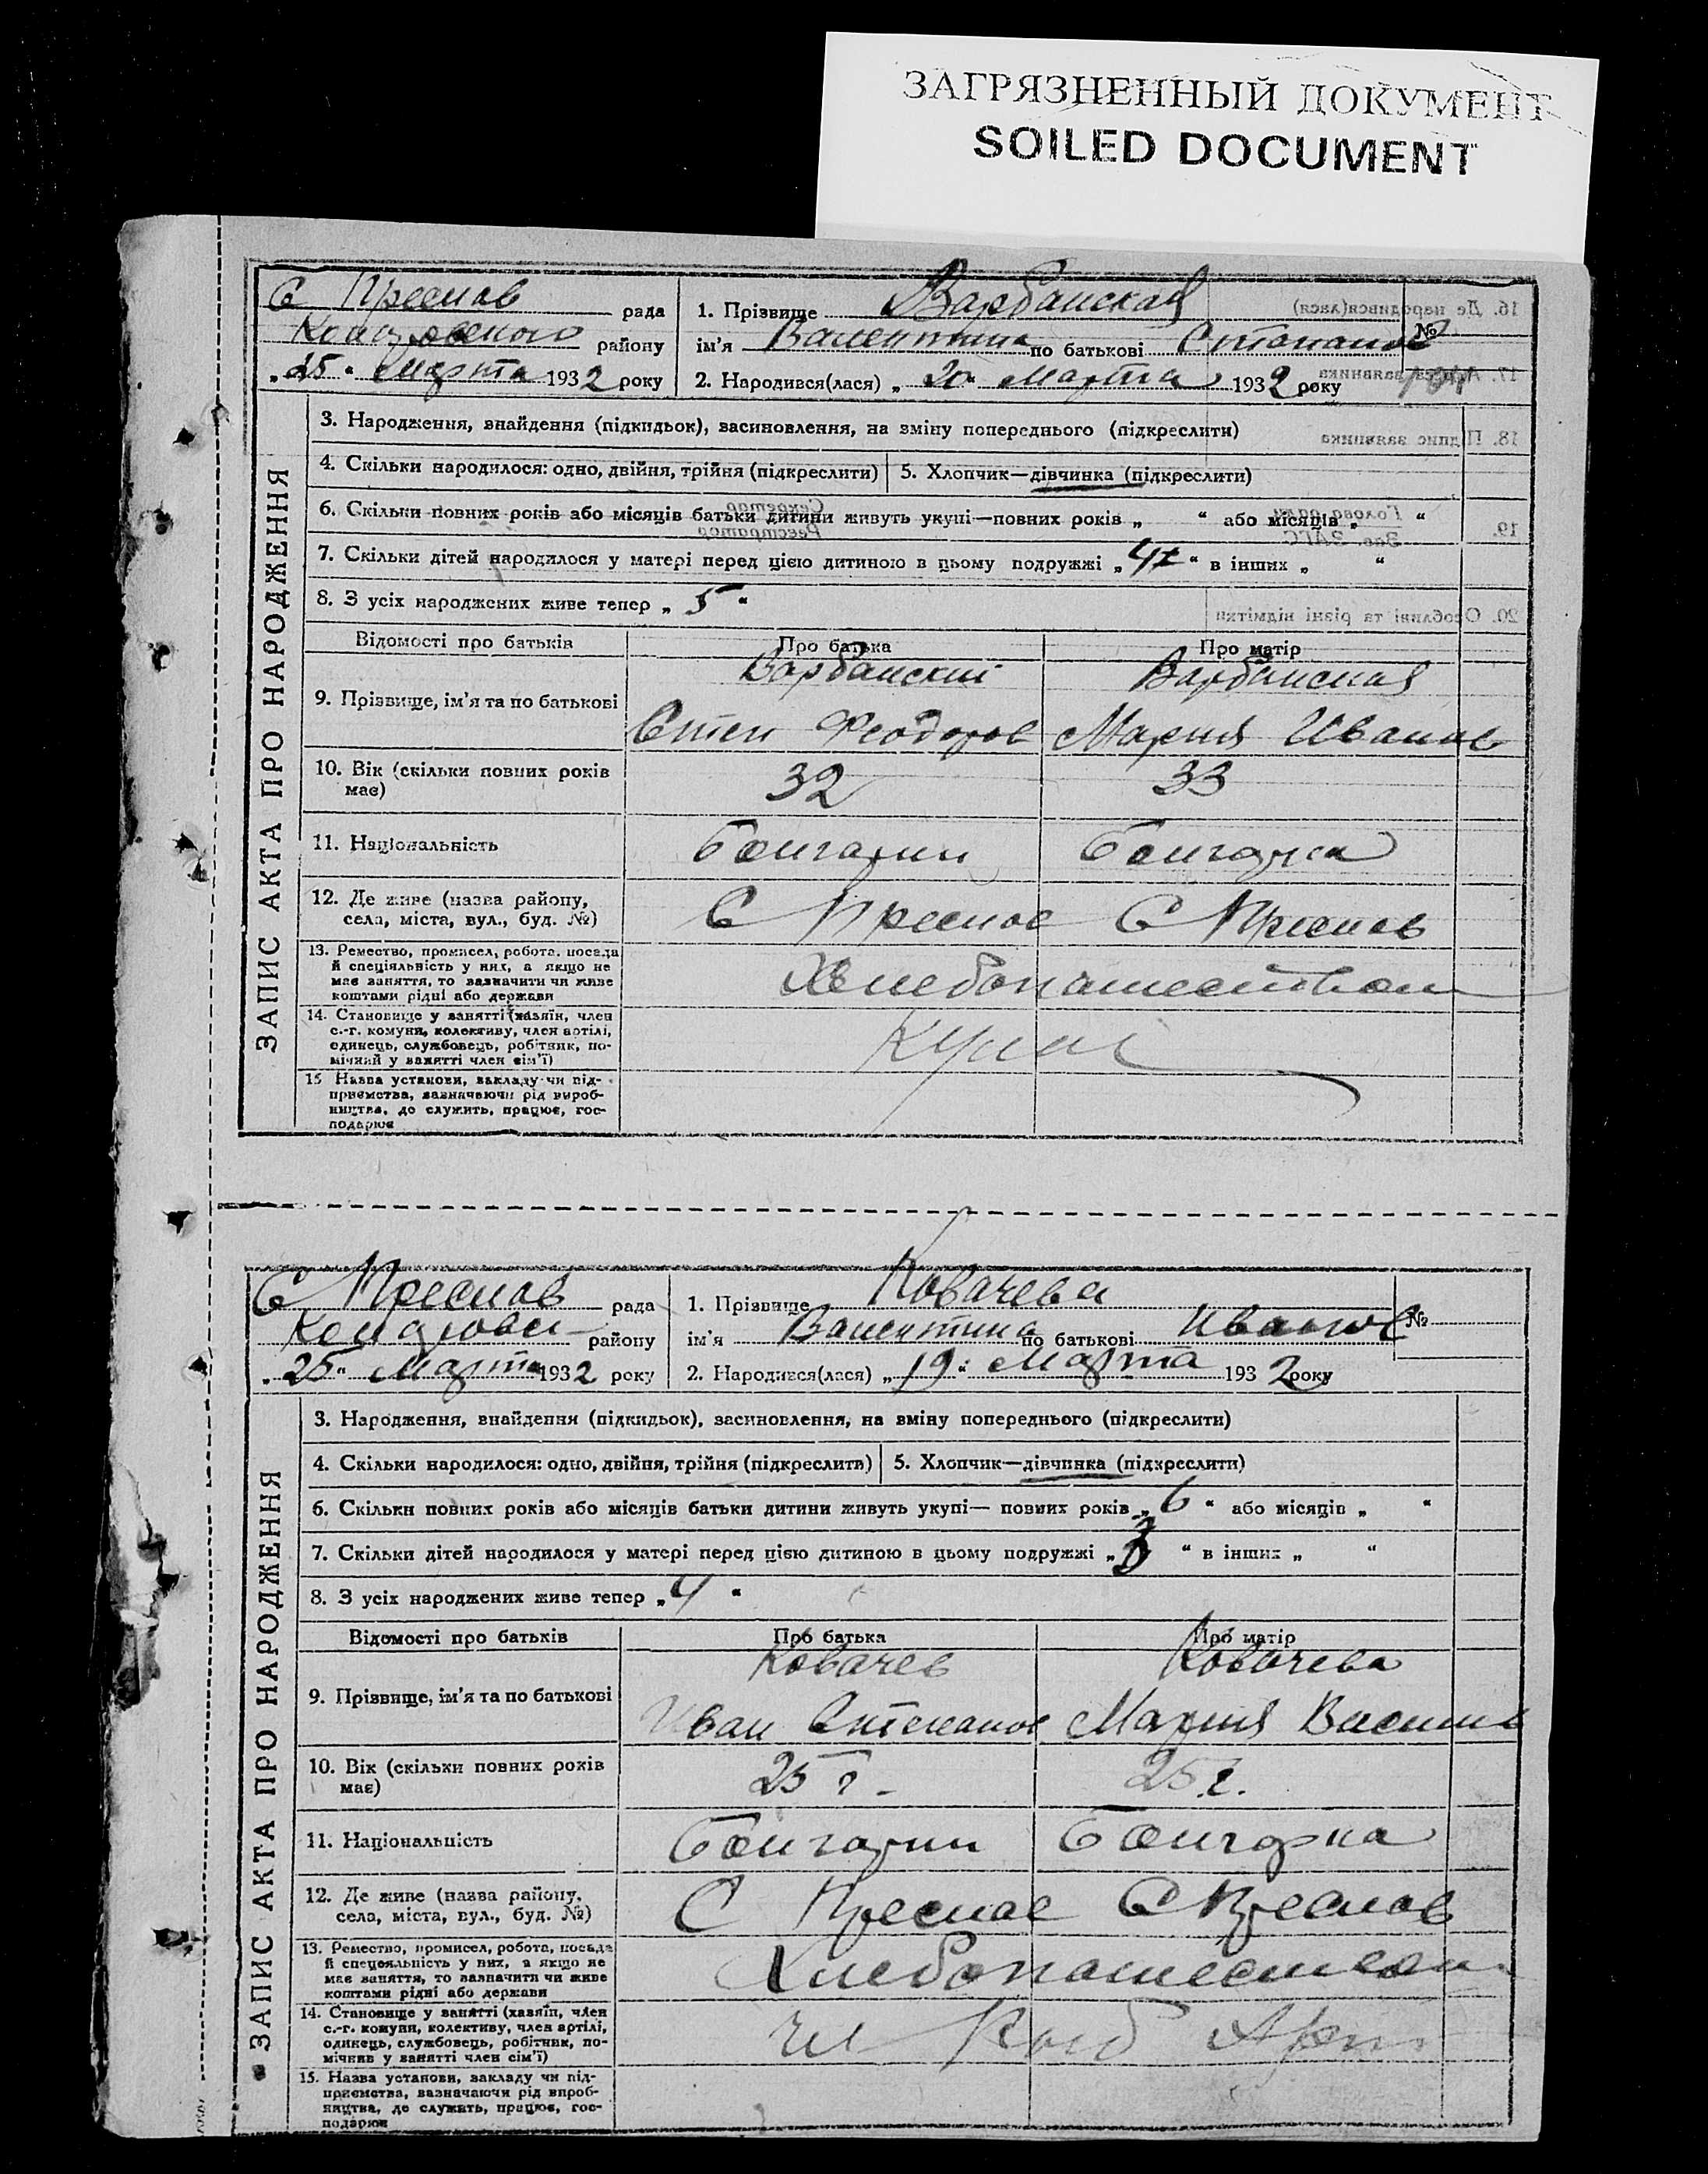 ЗАГРЯЗНЕННЫЙ ДОКУМЕНТ
SOILED DOCUMENT
С Преслав рада
району
„25“ Марта 1932 року
1. Прізвище Варбанская
ім'я Валентина по батькові Степанов
№
2. Народився(лася) „20“ Марта 1932 року
ЗАПИС АКТА ПРО НАРОДЖЕННЯ
3. Народження, знайдення (підкидьок), засиновлення, на зміну попереднього (підкреслити)
4. Скільки народилося: одно, двійня, трійня (підкреслити) 5. Хлопчик—дівчинка (підкреслити)
6. Скільки повних років або місяців батьки дитини живуть укупі—повних років „ “ або місяців „ “
7. Скільки дітей народилося у матері перед цією дитиною в цьому подружжі „4“ в інших „ “
8. З усіх народжених живе тепер „5“
Відомості про батьків Про батька Про матір
Варбанский Варбанская
9. Прізвище, ім'я та по батькові
Степ Феодоров Мария Иванов
10. Вік (скільки повних років 32 33
має)
11. Національність Болгарин Болгарка
12. Де живе (назва району, С Преслав С Преслав
села, міста, вул., буд. №)
13. Ремество, промисел, робота, посада
й спеціяльність у них, а якщо не Хлебопашеством
має заняття, то зазначити чи живе
коштами рідні або держави
14. Становище у занятті (хазяїн, член
с.-г. комуни, колективу, член артілі, Кулак
одинець, службовець, робітник, по-
мічний у занятті член сім'ї)
15 Назва установи, закладу чи під-
приємства, зазначаючи рід вироб-
ництва, де служить, працює, гос-
подарює
16. Де народився(лася)
17. Адреса заявника
18. Підпис заявника
Секретар
Реєстратор
Голова ради
Зав. ЗАГС
19.
20. Особливі та різні відмітки
С Преслав рада
району
„25“ Марта 1932 року
1. Прізвище Ковачева
ім'я Валентина по батькові Иванов
№
2. Народився(лася) „19“ Марта 1932 року
ЗАПИС АКТА ПРО НАРОДЖЕННЯ
3. Народження, знайдення (підкидьок), засиновлення, на зміну попереднього (підкреслити)
4. Скільки народилося: одно, двійня, трійня (підкреслити) 5. Хлопчик—дівчинка (підкреслити)
6. Скільки повних років або місяців батьки дитини живуть укупі— повних років „6“ або місяців „ “
7. Скільки дітей народилося у матері перед цією дитиною в цьому подружжі „3“ в інших „ “
8. З усіх народжених живе тепер „4“
Відомості про батьків Про батька Про матір
Ковачев Ковачева
9. Прізвище, ім'я та по батькові
Иван Степанов Мария Васильев
10. Вік (скільки повних років 25 г. 25 г.
має)
11. Національність Болгарин Болгарка
12. Де живе (назва району, С Преслав С Преслав
села, міста, вул., буд. №)
13. Ремество, промисел, робота, посада
й спецояльність у них, а якщо не Хлебопашеством
має заняття, то зазначити чи живе
коштами рідні або держави
14. Становище у занятті (хазяїн, член
с.-г. комуни, колективу, член артілі, чл Арт
одинець, службовець, робітник, по-
мічник у занятті член сім'ї)
15. Назва установи, закладу чи під-
приємства, зазначаючи рід вироб-
ництва, де служить, працює, гос-
подарює